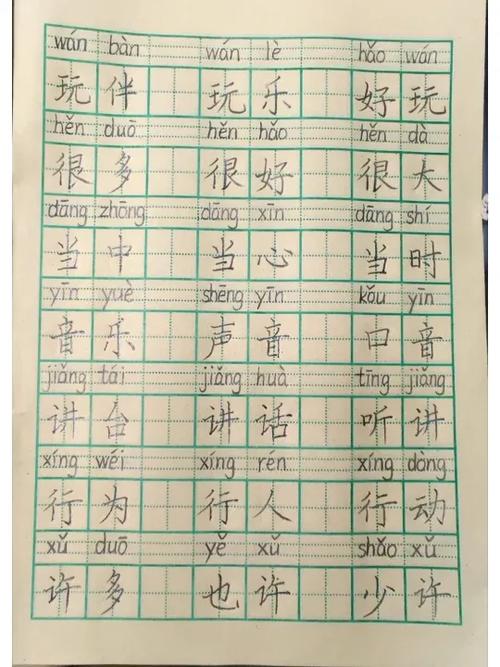 wán bàn wán lè hǎo wán
玩伴 玩乐 好玩
hěn duō hěn hǎo hěn dà
很多 很好 很大
dāng zhōng dāng xīn dāng shí
当中 当心 当时
yīn yuè shēng yīn kǒu yīn
音乐 声音 口音
jiǎng tái jiǎng huà tīng jiǎng
讲台 讲话 听讲
xíng wéi xíng rén xíng dòng
行为 行人 行动
xǔ duō yě xǔ shǎo xǔ
许多 也许 少许